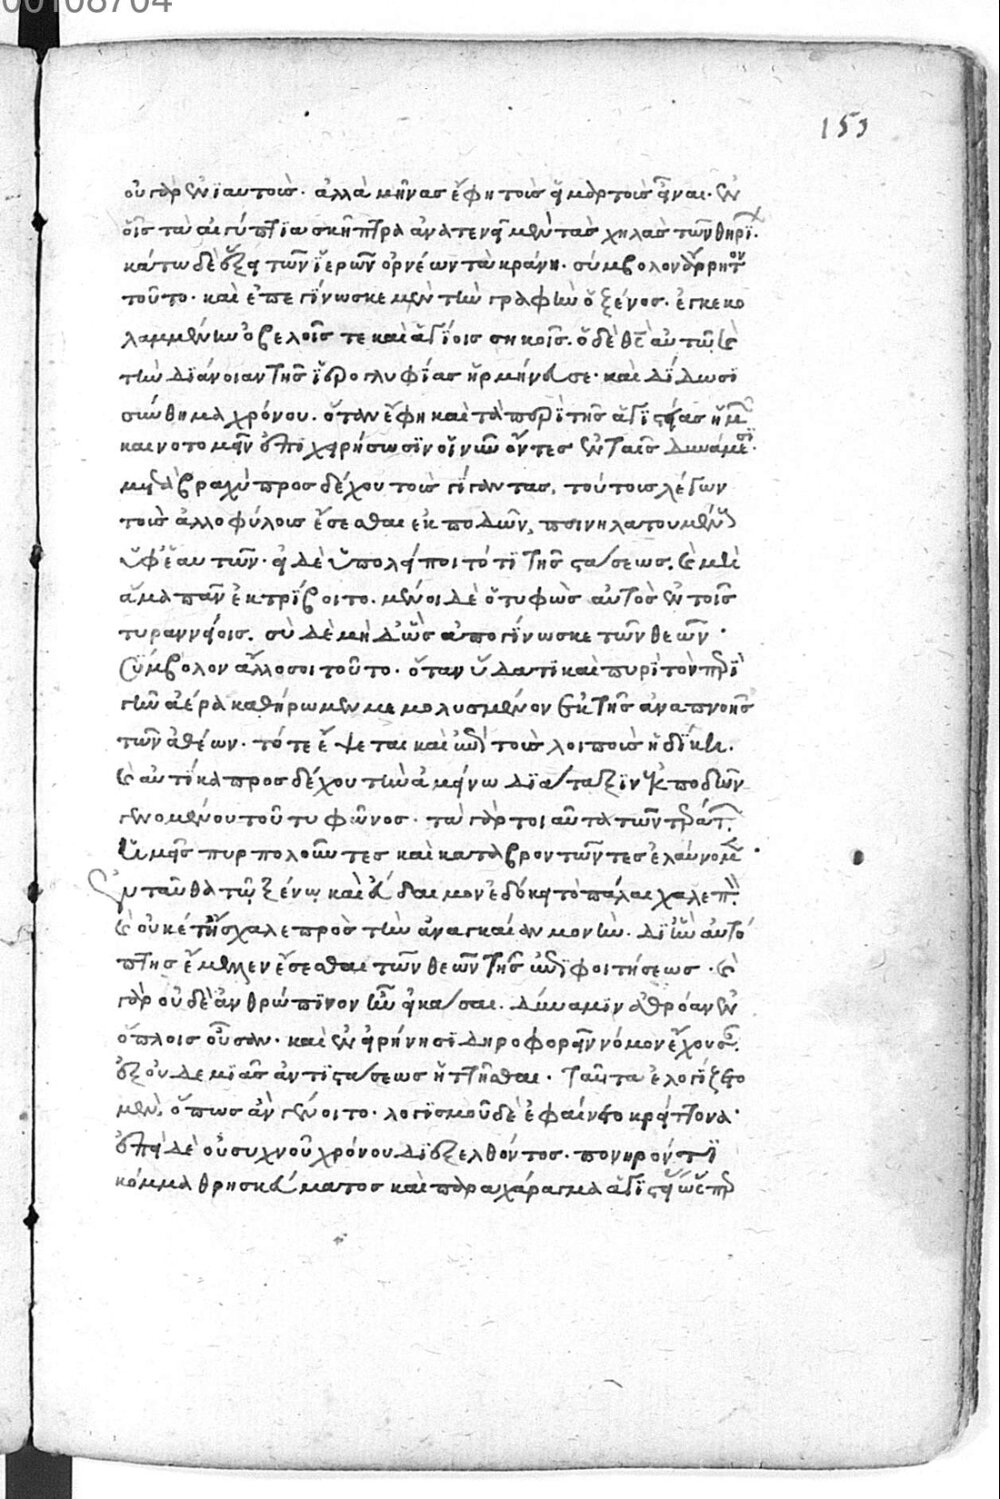 153
οὐ γὰρ ἐνϊαυτοὺς· ἀλλὰ μῆνας ἔφη τοὺς εἱμαρτοὺς εἶναι· ἐν
οἷς τὰ αἰγύπτϊα σκῆπτρα ἀνατενεῖ μὲν τὰς χηλὰς τῶν θηρΐ·
κάτω δὲ ἕξει τῶν ἱερῶν ὀρνέων τὰ κράνη· σύμβολον ἄρρητον
τοῦτο· καὶ ἐπεγίνωσκε μὲν τὴν γραφὴν ὁ ξένος· ἐγκεκο
λαμμένην ὀβελοῖς τε καὶ ἁγίοις σηκοῖς· ὁ δὲ θεὸς αὐτῶ καὶ
τὴν διάνοιαν τῆς ἱερογλυφίας ἡρμήνευσε· καὶ δίδωσι
σύνθημα χρόνου· ὅταν ἔφη καὶ τὰ περὶ τῆς ἁγιστείας ἡμῶν
καινοτομεῖν ἐπιχειρήσωσϊν οἱ νῦν ὄντες ἐν ταῖς δυνάμεσϊ·
μετὰ βραχὺ προσδέχου τοὺς γίγαντας, τούτους λέγων
τοὺς ἀλλοφύλους ἔσεσθαι ἐκποδών, ποινηλατουμένους
ὑφ' ἑαυτῶν· εἰ δὲ ὑπολείποιτό τι τῆς στάσεως, καὶ μὴ
ἅμα πᾶν ἐκτρίβοιτο. μένοι δὲ ὁ τυφὼς αὐτὸς ἐν τοῖς
τυραννείοις. σὺ δὲ μὴ δ' ὣς ἀπογίνωσκε τῶν θεῶν·
Σύμβολον ἄλλο σοι τοῦτο· ὅταν ὕδατι καὶ πυρὶ τὸν περὶ
γῆν ἀέρα καθήρωμεν μεμολυσμένον ἐκ τῆς ἀναπνοῆς
τῶν ἀθέων. τότε ἕψεται καὶ ἐπὶ τοὺς λοιποὺς ἡ δίκη.
καὶ αὐτίκα προσδέχου τὴν ἀμείνω διάταξιν ἐκποδὼν
γενομένου τοῦ τυφῶνος· τὰ γάρ τοι αὐτὰ τῶν τεράτων
ἡμεῖς πυρπολοῦντες καὶ καταβροντῶντες ἐλαύνομεν·
Ἐνταῦθα τῶ ξένω καὶ εὔδαιμον ἐδόκει τὸ πάλαι χαλεπόν·
καὶ οὐκέτι ἤσχαλε πρὸς τὴν ἀναγκαίαν μονήν· δι' ἣν αὐτό
πτης ἔμελλεν ἔσεσθαι τῶν θεῶν τῆς ἐπιφοιτήσεως· καὶ
γὰρ οὐδὲ ἀνθρώπϊνον ἦν εἰκάσαι. δύναμϊν ἀθρόαν ἐν
ὅπλοις οὖσαν· καὶ ἐν εἰρήνη σϊδηροφορεῖν νόμον ἔχουσαν·
ἐξ οὐδεμϊᾶς ἀντιστάσεως ἡττῆσθαι. Ταῦτα ἐλογίζετο
μέν, ὅπως ἂν γένοιτο· λογισμοῦ δὲ ἐφαίνετο κρείττονα·
ἐπεὶ δὲ οὐ συχνοῦ χρόνου διεξελθόντος. πονηρόν τι
κόμμα θρησκεύματος καὶ παραχάραγμα ἁγιστείας ὥσπερ